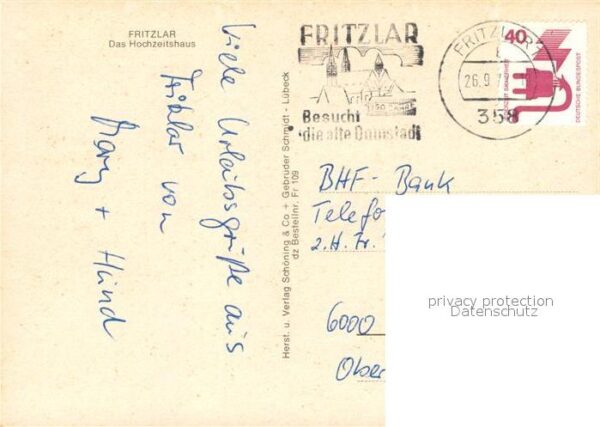 FRITZLAR
Das Hochzeitshaus
Viele Urlaubsgrüße aus
Fritzlar von
+ Hund
Herst. u. Verlag Schöning & Co + Gebrüder Schmidt - Lübeck
dz Bestellnr. Fr 109
FRITZLAR
Besucht
die alte Domstadt
FRITZLAR 1
26.9.7
358
40
DEUTSCHE BUNDESPOST
BHF - Bank
Telefo
z.H. Fr.
6000
Ober
privacy protection
Datenschutz